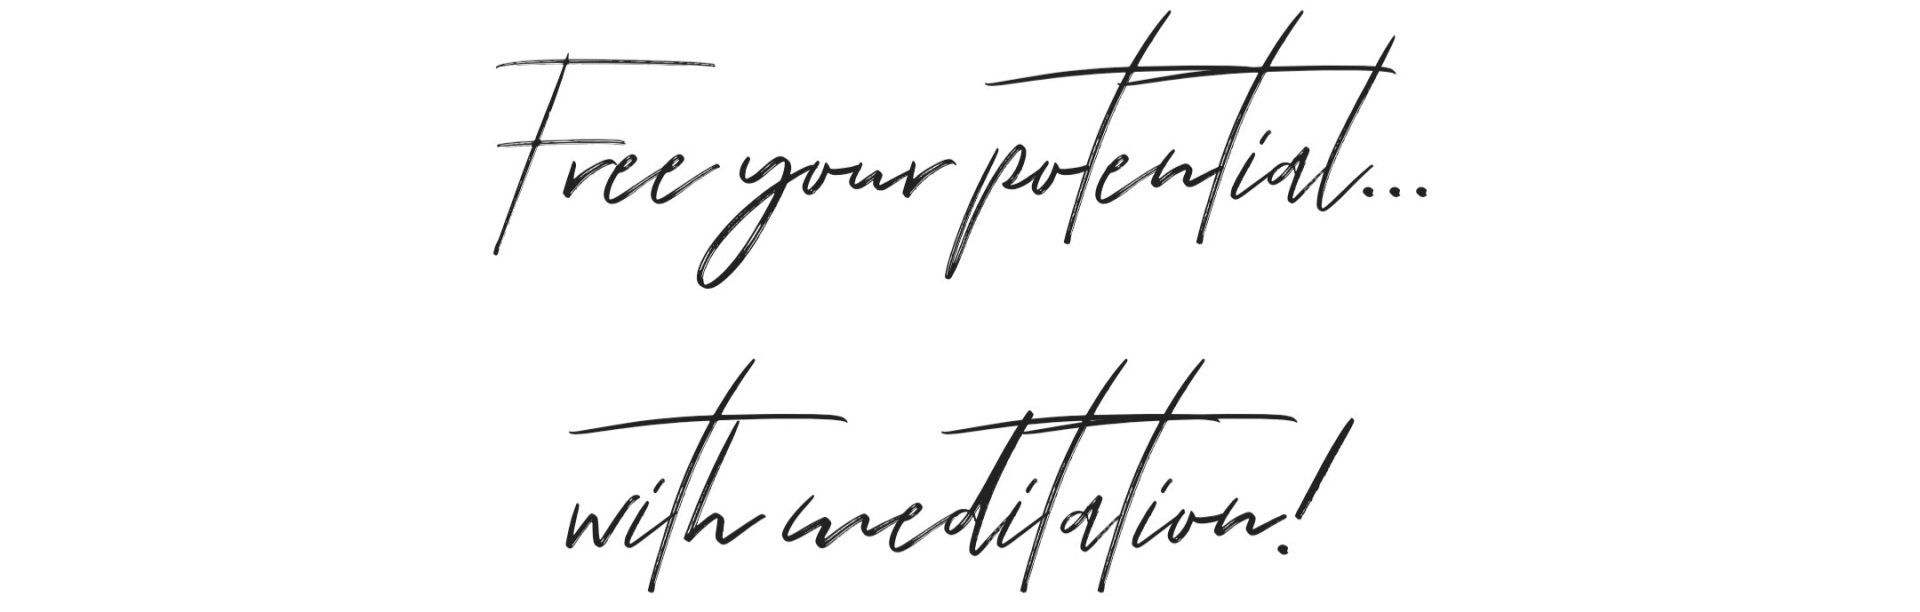 Free your potential...
with meditation!